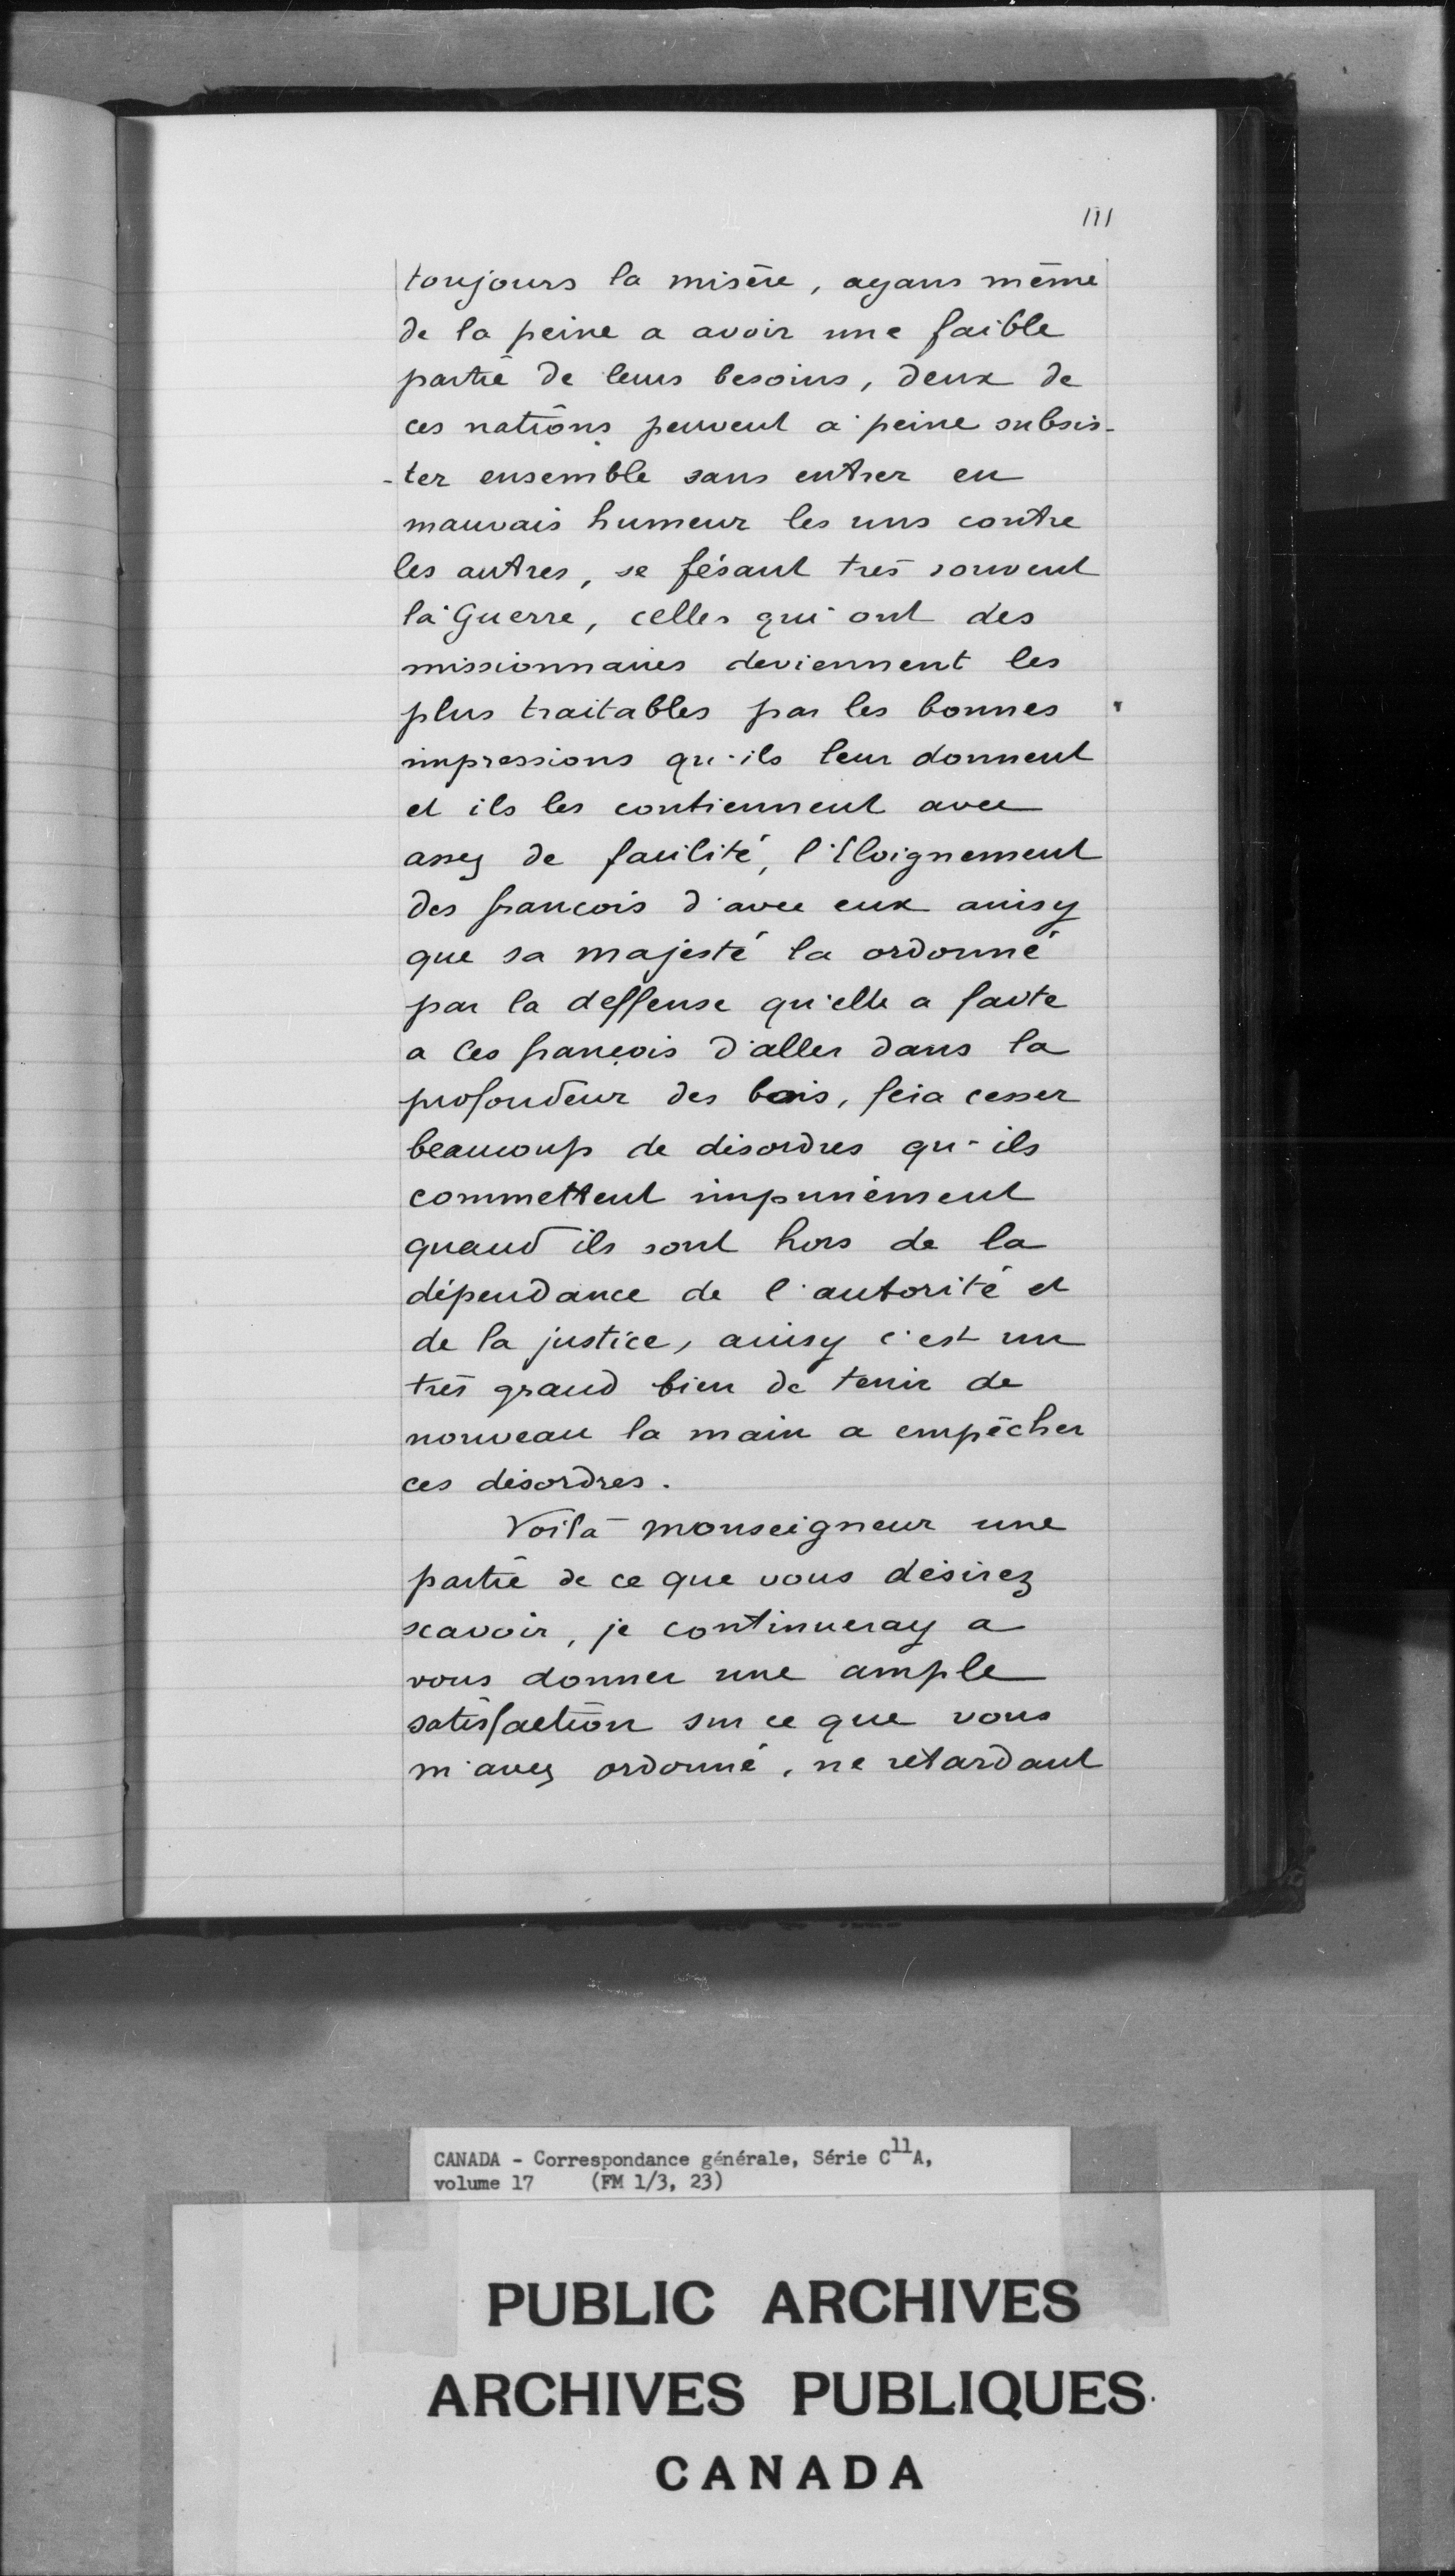 111
toujours la misère, ayans même
de la peine a avoir une faible
partie de leurs besoins, deux de
ces nations peuvent a peine subsis-
-ter ensemble sans entrer en
mauvais humeur les uns contre
les autres, se fésant très souvent
la Guerre, celles qui ont des
missionnaires deviennent les
plus traitables par les bonnes
impressions qu'ils leur donnent
et ils les contiennent avec
assez de facilité, l'Eloignement
des francois d'avec eux ainsy
que sa majesté la ordonné
par la deffense qu'elle a faite
a ces françois d'aller dans la
profondeur des bois, fera cesser
beaucoup de désordres qu'ils
commettent impunément
quand ils sont hors de la
dépendance de l'autorité et
de la justice, ainsy c'est un
très grand bien de tenir de
nouveau la main a empêcher
ces désordres.
Voilà monseigneur une
partie de ce que vous désirez
scavoir, je continueray a
vous donner une ample
satisfaction sur ce que vous
m'avez ordonné, ne retardant
CANADA - Correspondance générale, Série C11A,
volume 17 (FM 1/3, 23)
PUBLIC ARCHIVES
ARCHIVES PUBLIQUES
CANADA